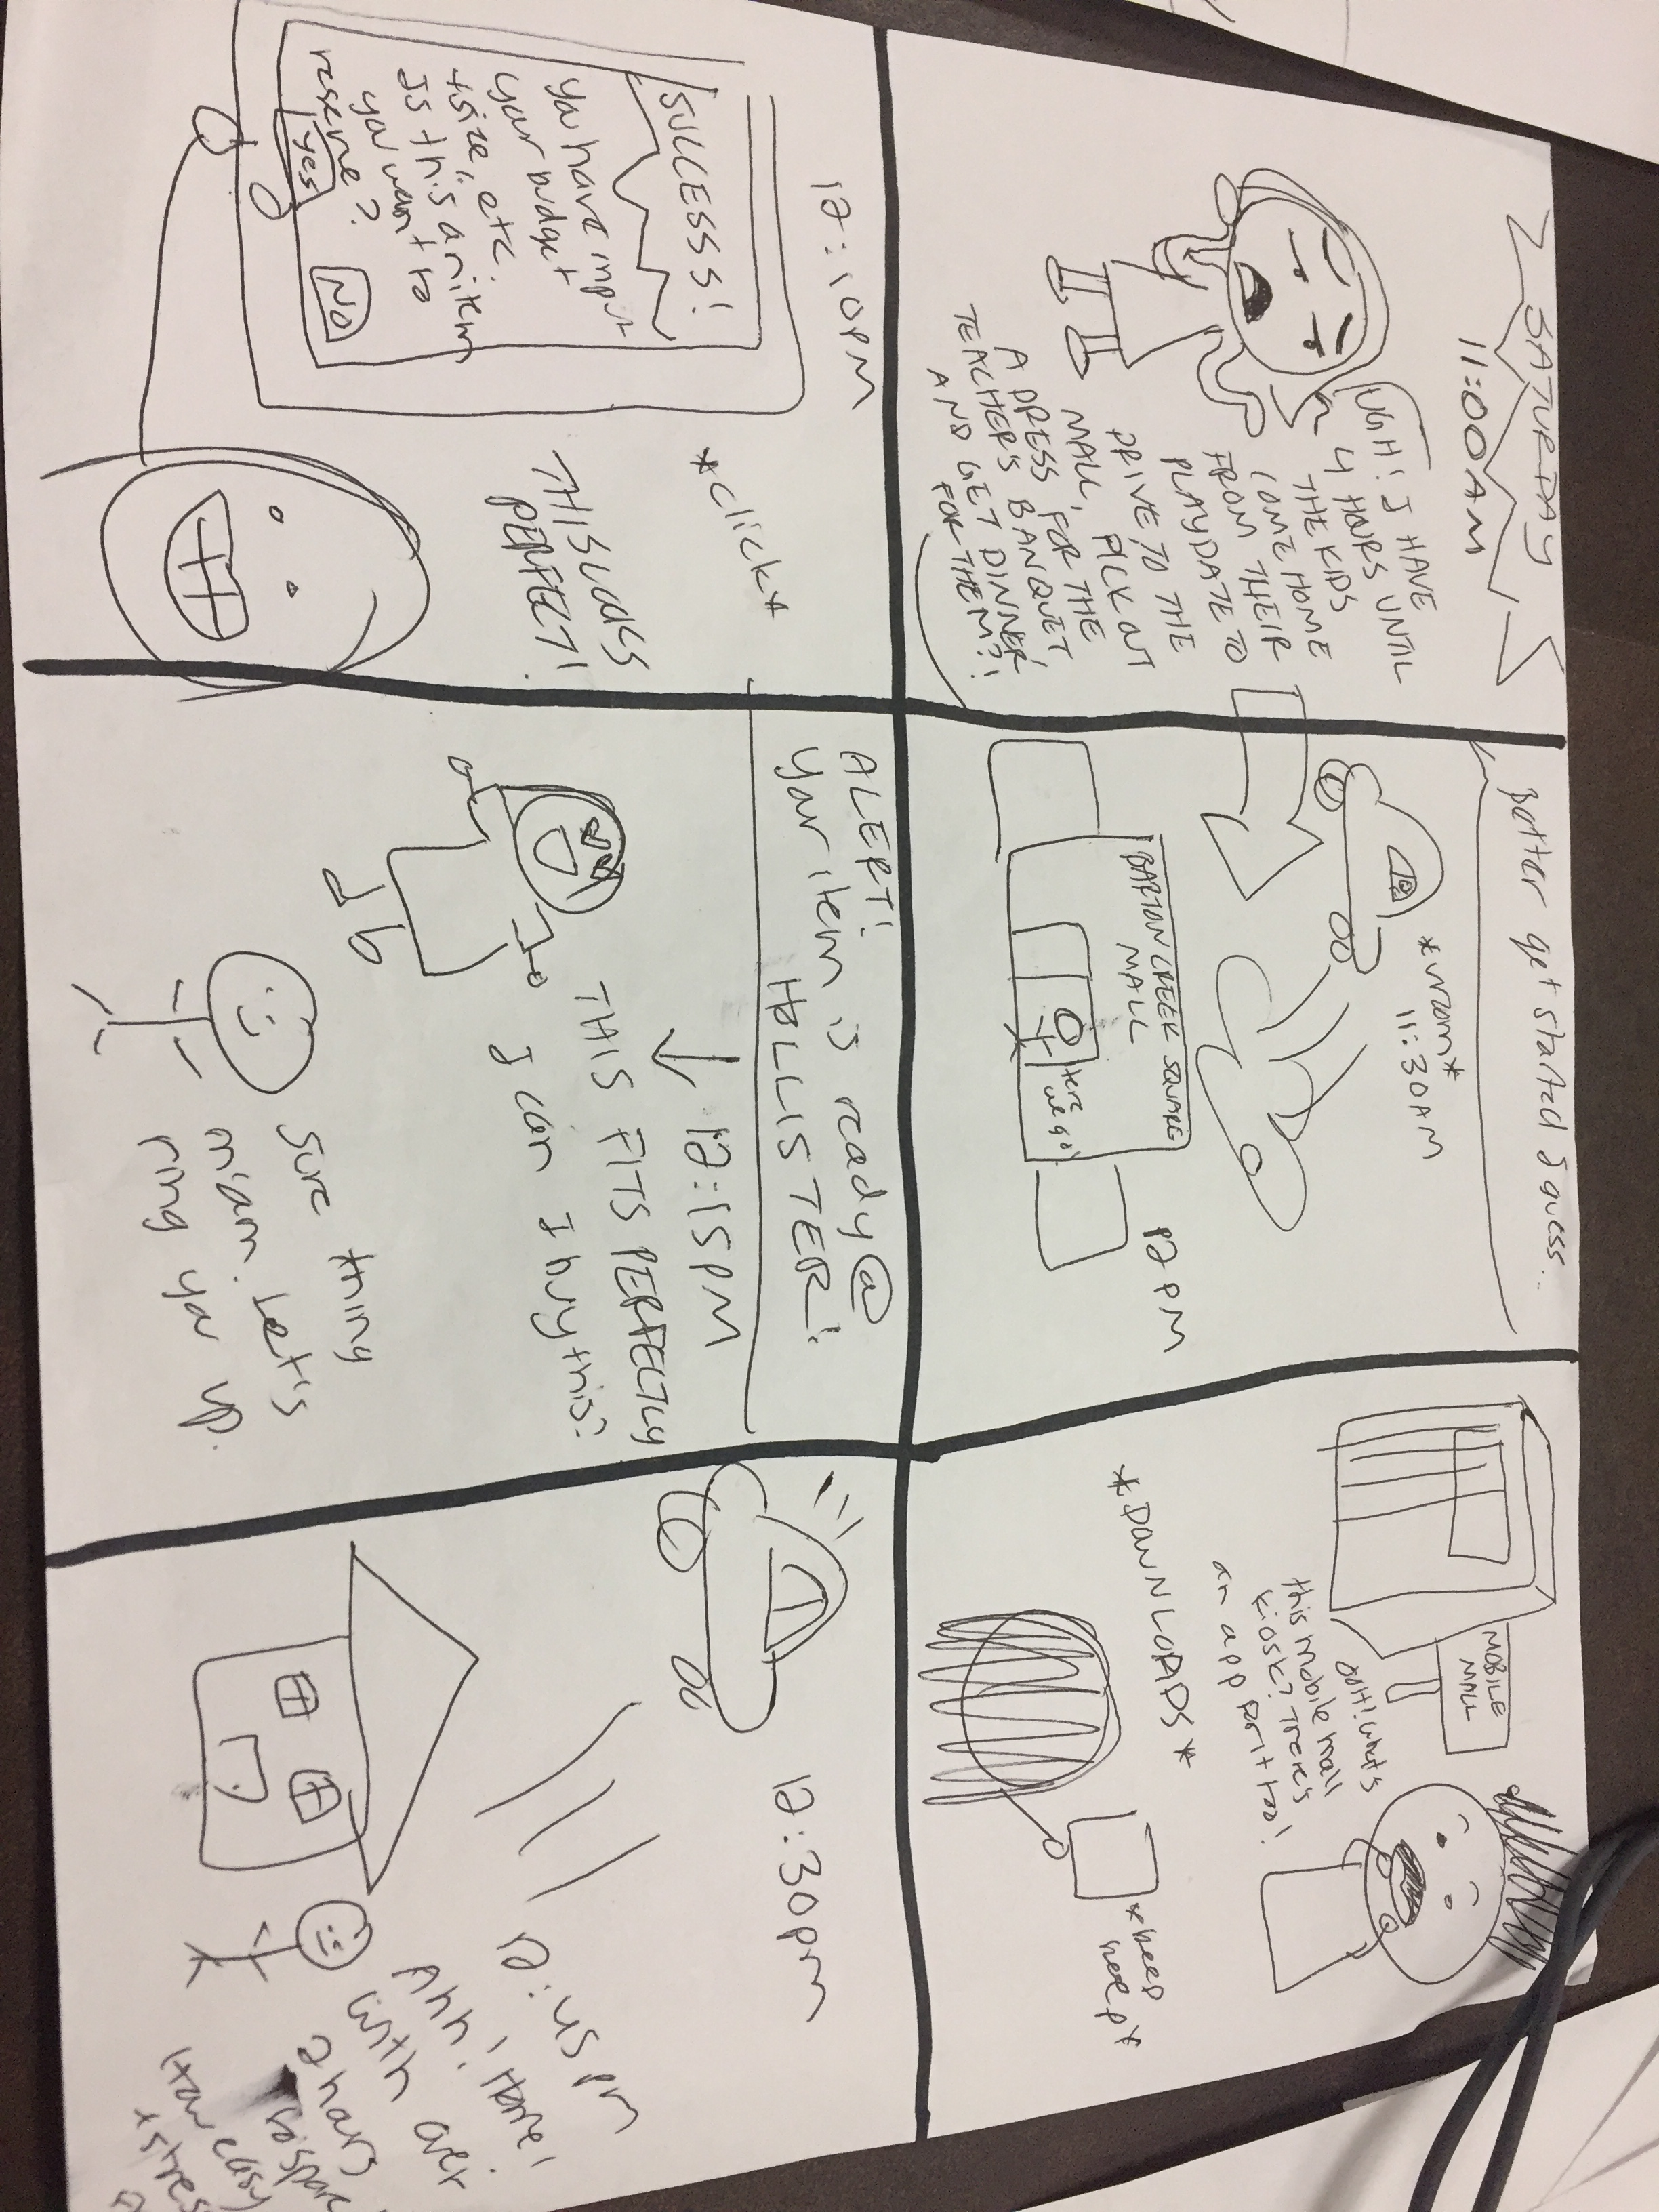 SATURDAY
11:00AM
UGH! I HAVE
4 HOURS UNTIL
THE KIDS
COME HOME
FROM THEIR
PLAYDATE TO
DRIVE TO THE
MALL, PICK OUT
A DRESS FOR THE
TEACHER'S BANQUET,
AND GET DINNER
FOR THEM?!
better get started I guess...
*vroom*
11:30AM
BARTON CREEK SQUARE
MALL
Here
we go!
12PM
MOBILE
MALL
OOH! What's
this mobile mall
kiosk? There's
an app for it too!
*DOWNLOADS*
*beep
beep*
12:10PM
SUCCESS!
You have input
your budget
size, etc.
Is this an item
you want to
reserve?
Yes
NO
*click*
THIS LOOKS
PERFECT!
ALERT!
Your item is ready @
HOLLISTER!
12:15PM
THIS FITS PERFECTLY
I can I buy this?
Sure thing
ma'am. Let's
ring you up.
12:30pm
12:45pm
Ahh! Home!
with over
2 hours
to spare
How easy